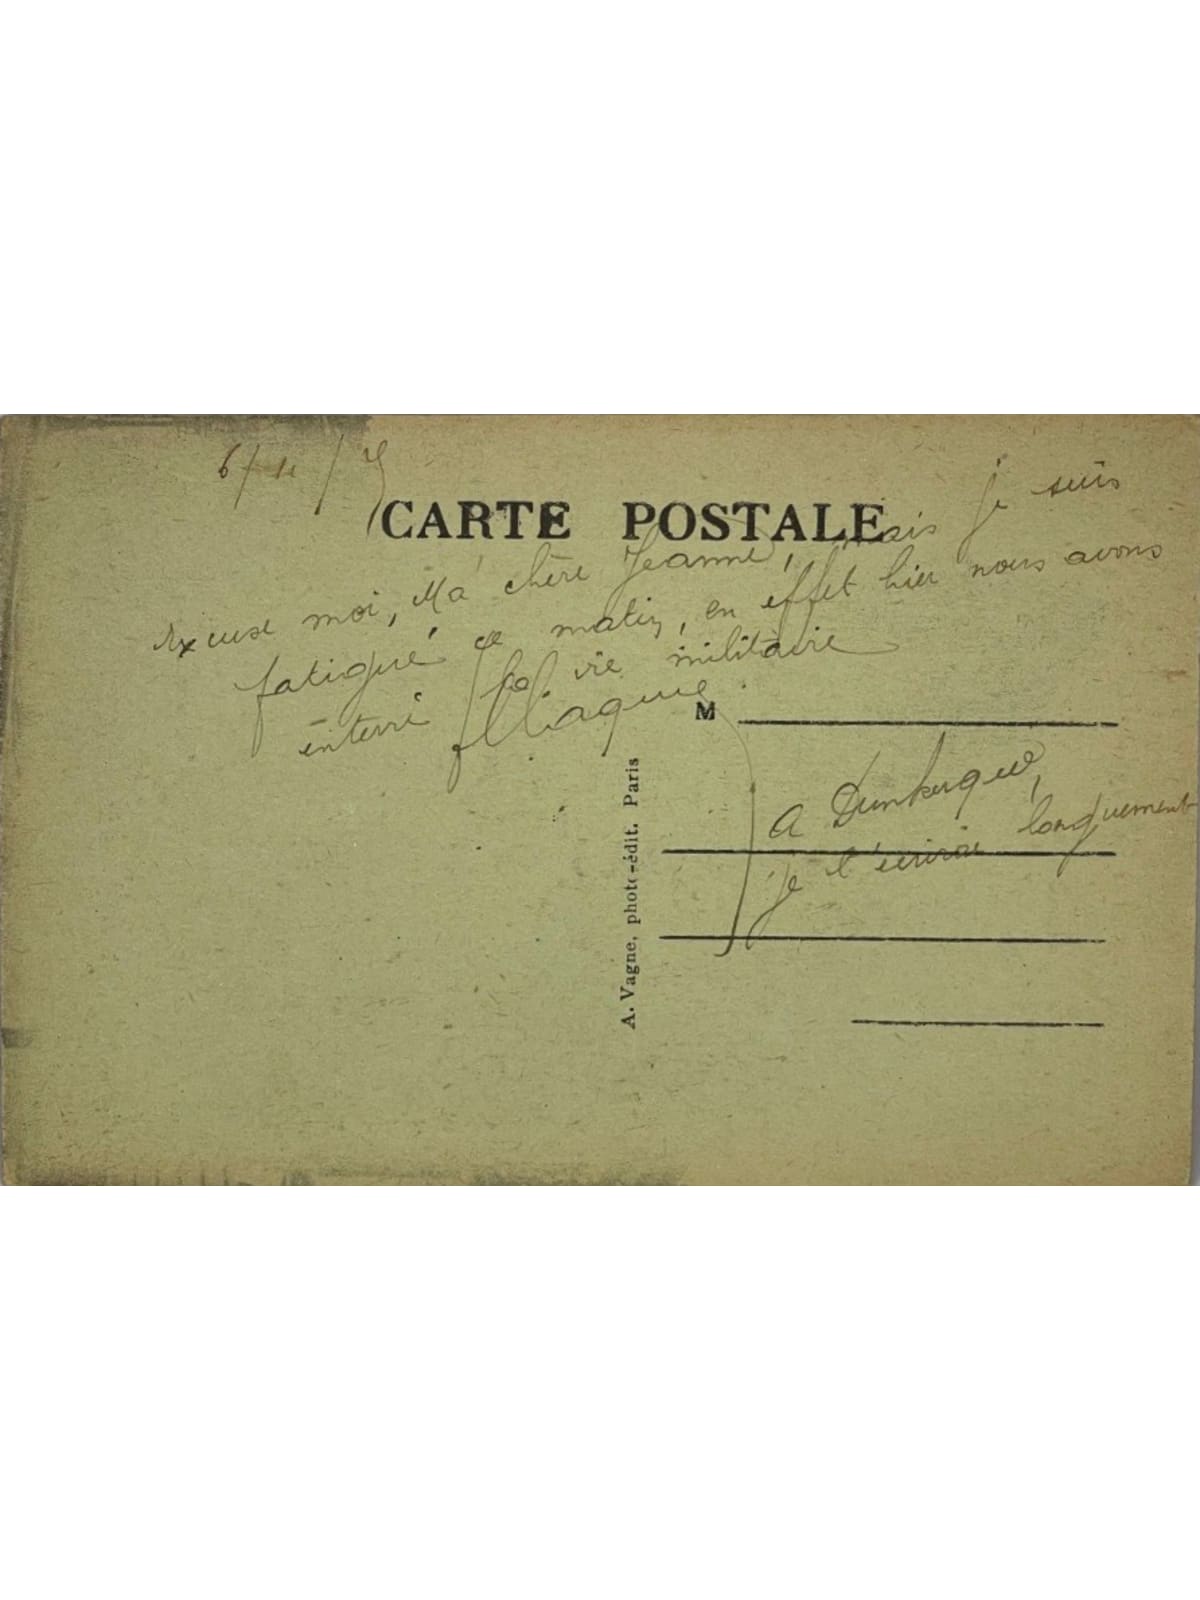 6/11/
CARTE POSTALE
Excuse moi, Ma chère Jeanne, mais je suis
fatigué ce matin, en effet hier nous avons
enterré la vie militaire
M
A. Vagne, photo-édit. Paris
A Dunkerque,
je t'écrirai longuement